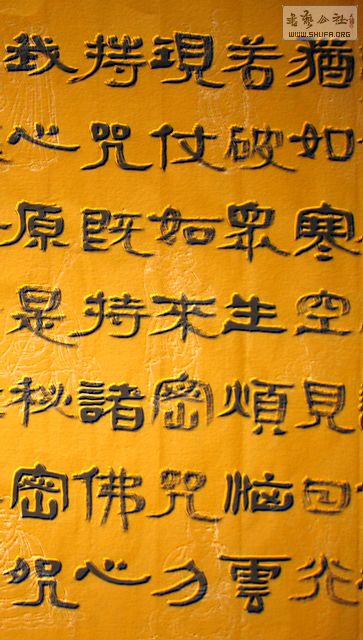 猶如寒空見日光
若破眾生煩惱雲
現仗如來密咒力
持咒既持諸佛心
我心原是秘密咒
書藝公社
WWW.SHUFA.ORG